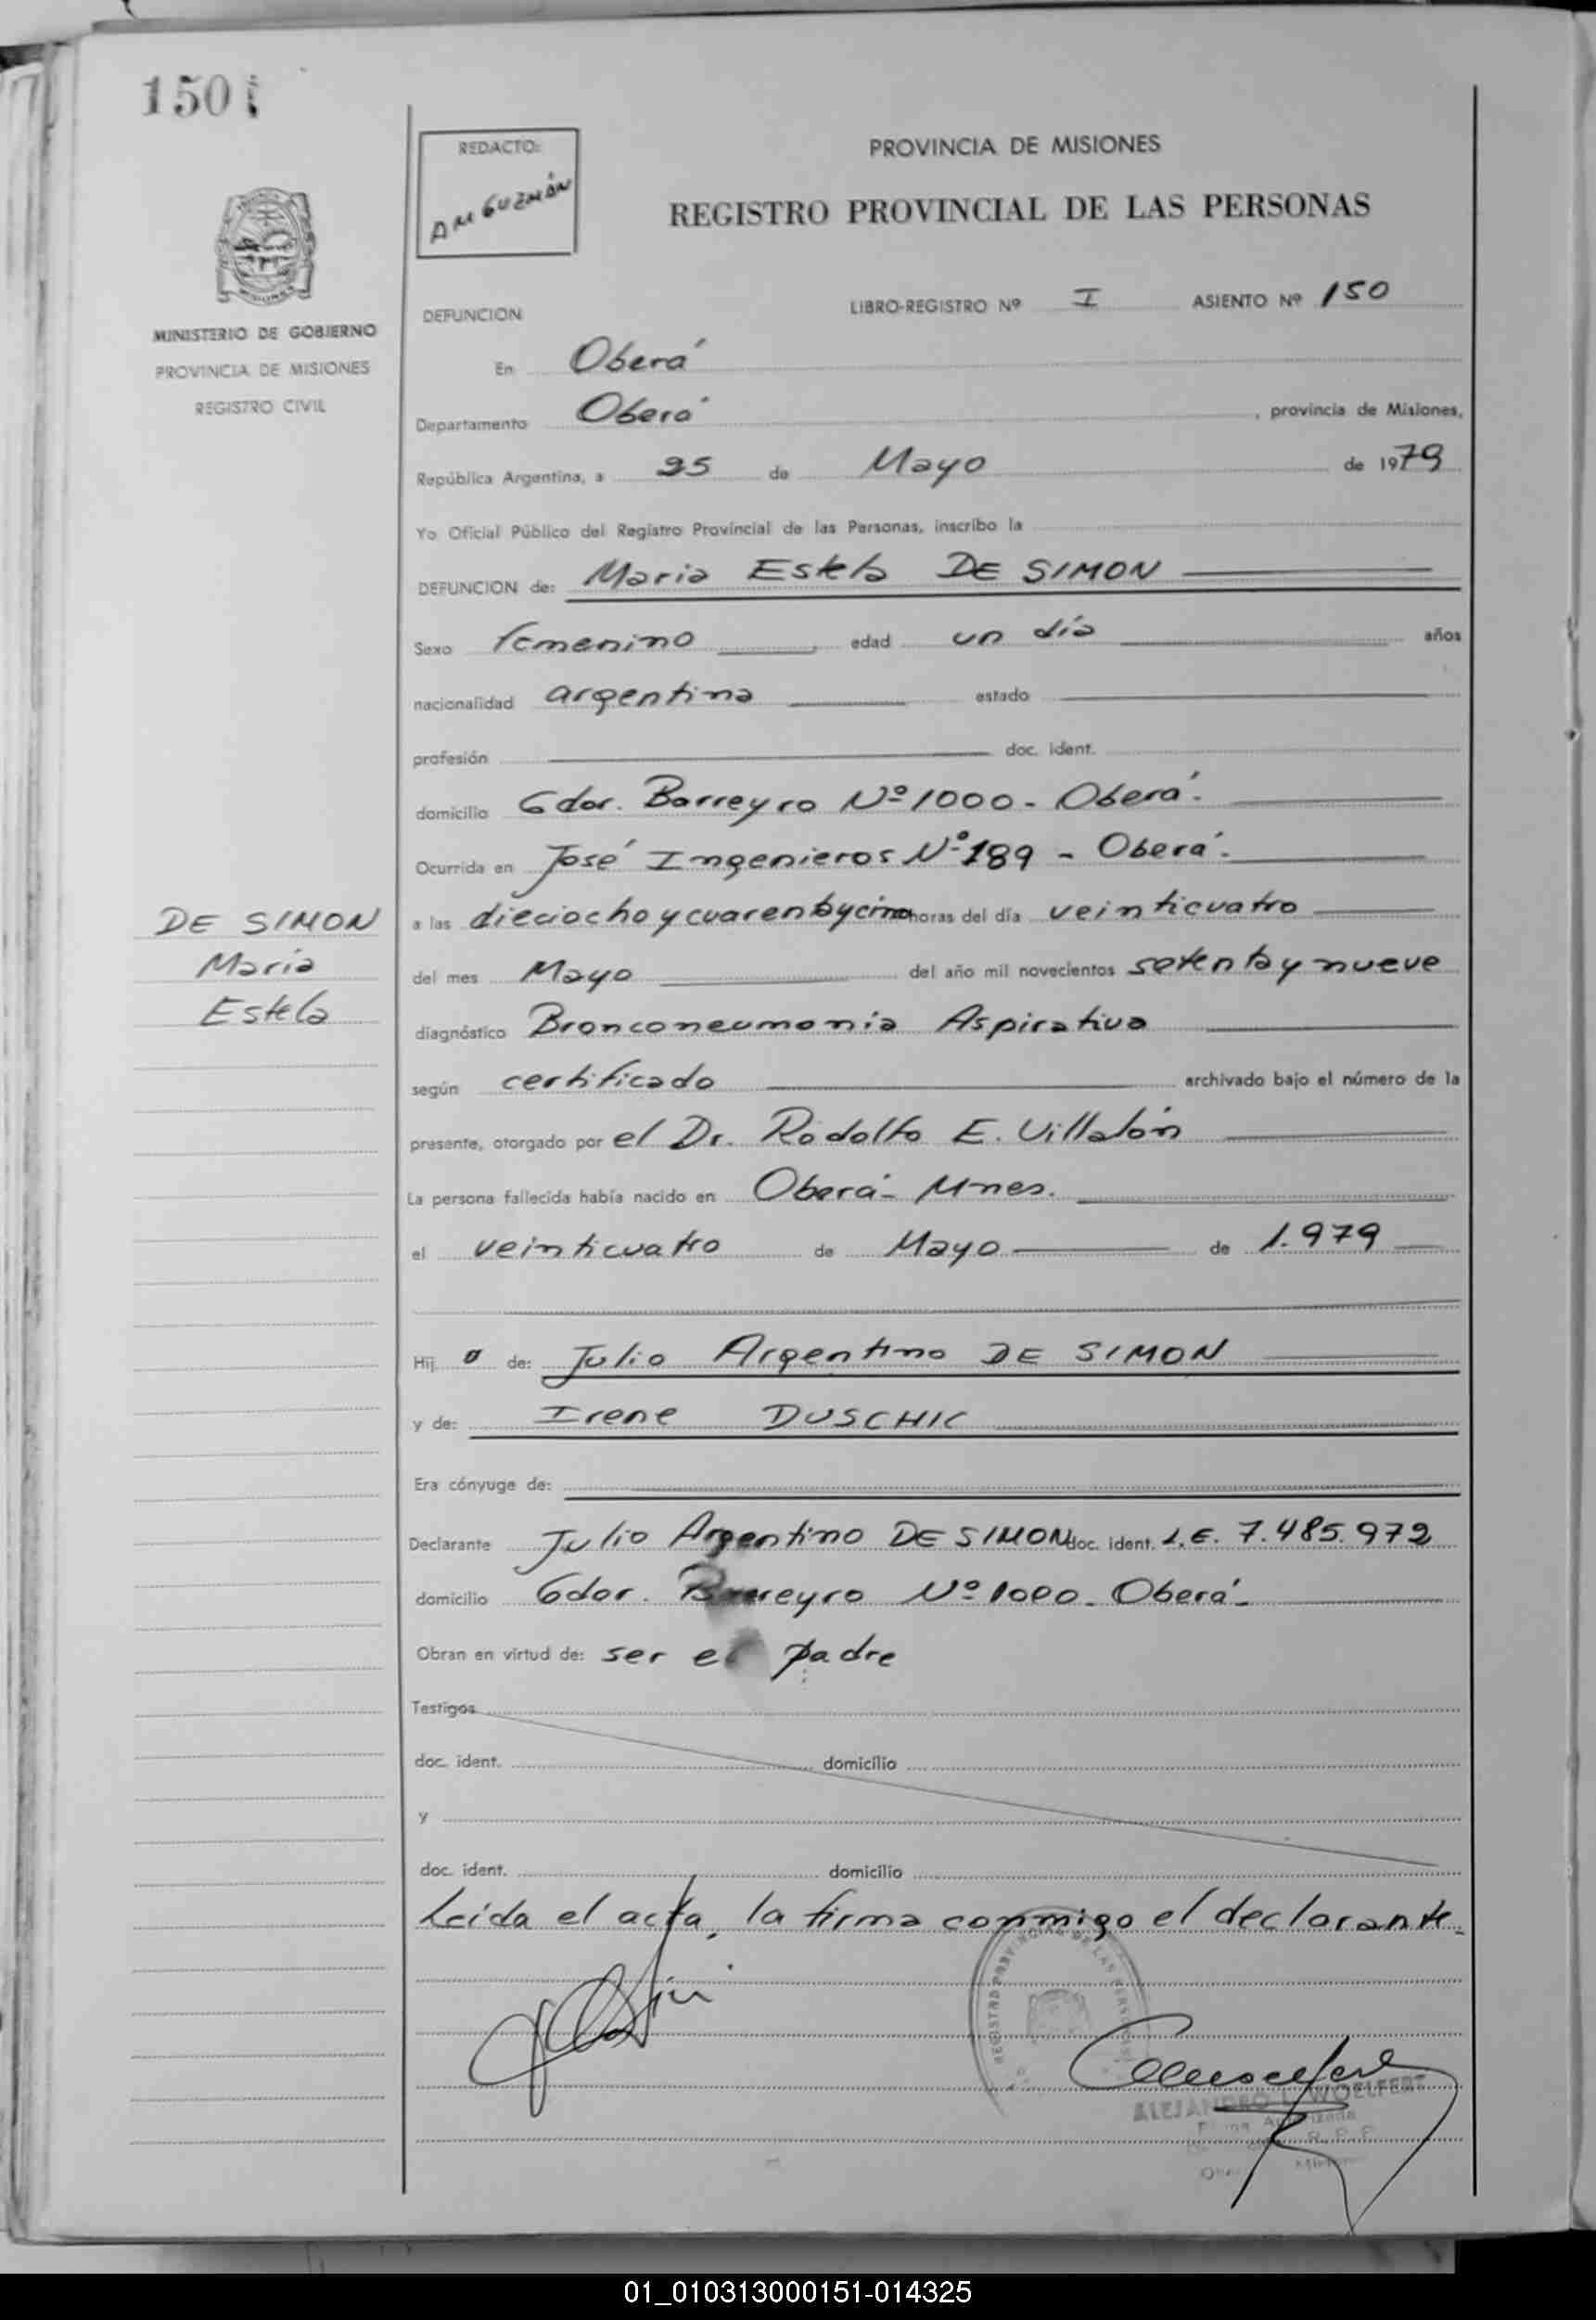 150
REDACTO:
AM GUZMÁN
PROVINCIA DE MISIONES
REGISTRO PROVINCIAL DE LAS PERSONAS
MISIONES
MINISTERIO DE GOBIERNO
PROVINCIA DE MISIONES
REGISTRO CIVIL
DEFUNCION
LIBRO-REGISTRO Nº I ASIENTO Nº 150
En Oberá
Departamento Oberá, provincia de Misiones,
República Argentina, a 25 de Mayo de 1979
Yo Oficial Público del Registro Provincial de las Personas, inscribo la
DEFUNCION de: Maria Estela DE SIMON
Sexo femenino edad un día años
nacionalidad argentina estado
profesión doc. ident.
domicilio Gdor. Barreyro Nº 1000 - Oberá.
Ocurrida en José Ingenieros Nº 189 - Oberá.
DE SIMON
María
Estela
a las dieciocho y cuarenta y cinco horas del día veinticuatro
del mes Mayo del año mil novecientos setenta y nueve
diagnóstico Bronconeumonia Aspirativa
según certificado archivado bajo el número de la
presente, otorgado por el Dr. Rodolfo E. Villalón
La persona fallecida había nacido en Oberá - Mnes.
el veinticuatro de Mayo de 1.979
Hij a de: Julio Argentino DE SIMON
y de: Irene DUSCHIC
Era cónyuge de:
Declarante Julio Argentino DE SIMON doc. ident. L.E. 7.485.972
domicilio Gdor. Barreyro Nº 1000 - Oberá -
Obran en virtud de: ser el padre
Testigos
doc. ident. domicilio
y
doc. ident. domicilio
Leida el acta, la firma conmigo el declarante.
REGISTRO PROVINCIAL DE LAS PERSONAS
ALEJANDRO L. WOELFERT
Firma Autorizada
R. P. P.
01_010313000151-014325